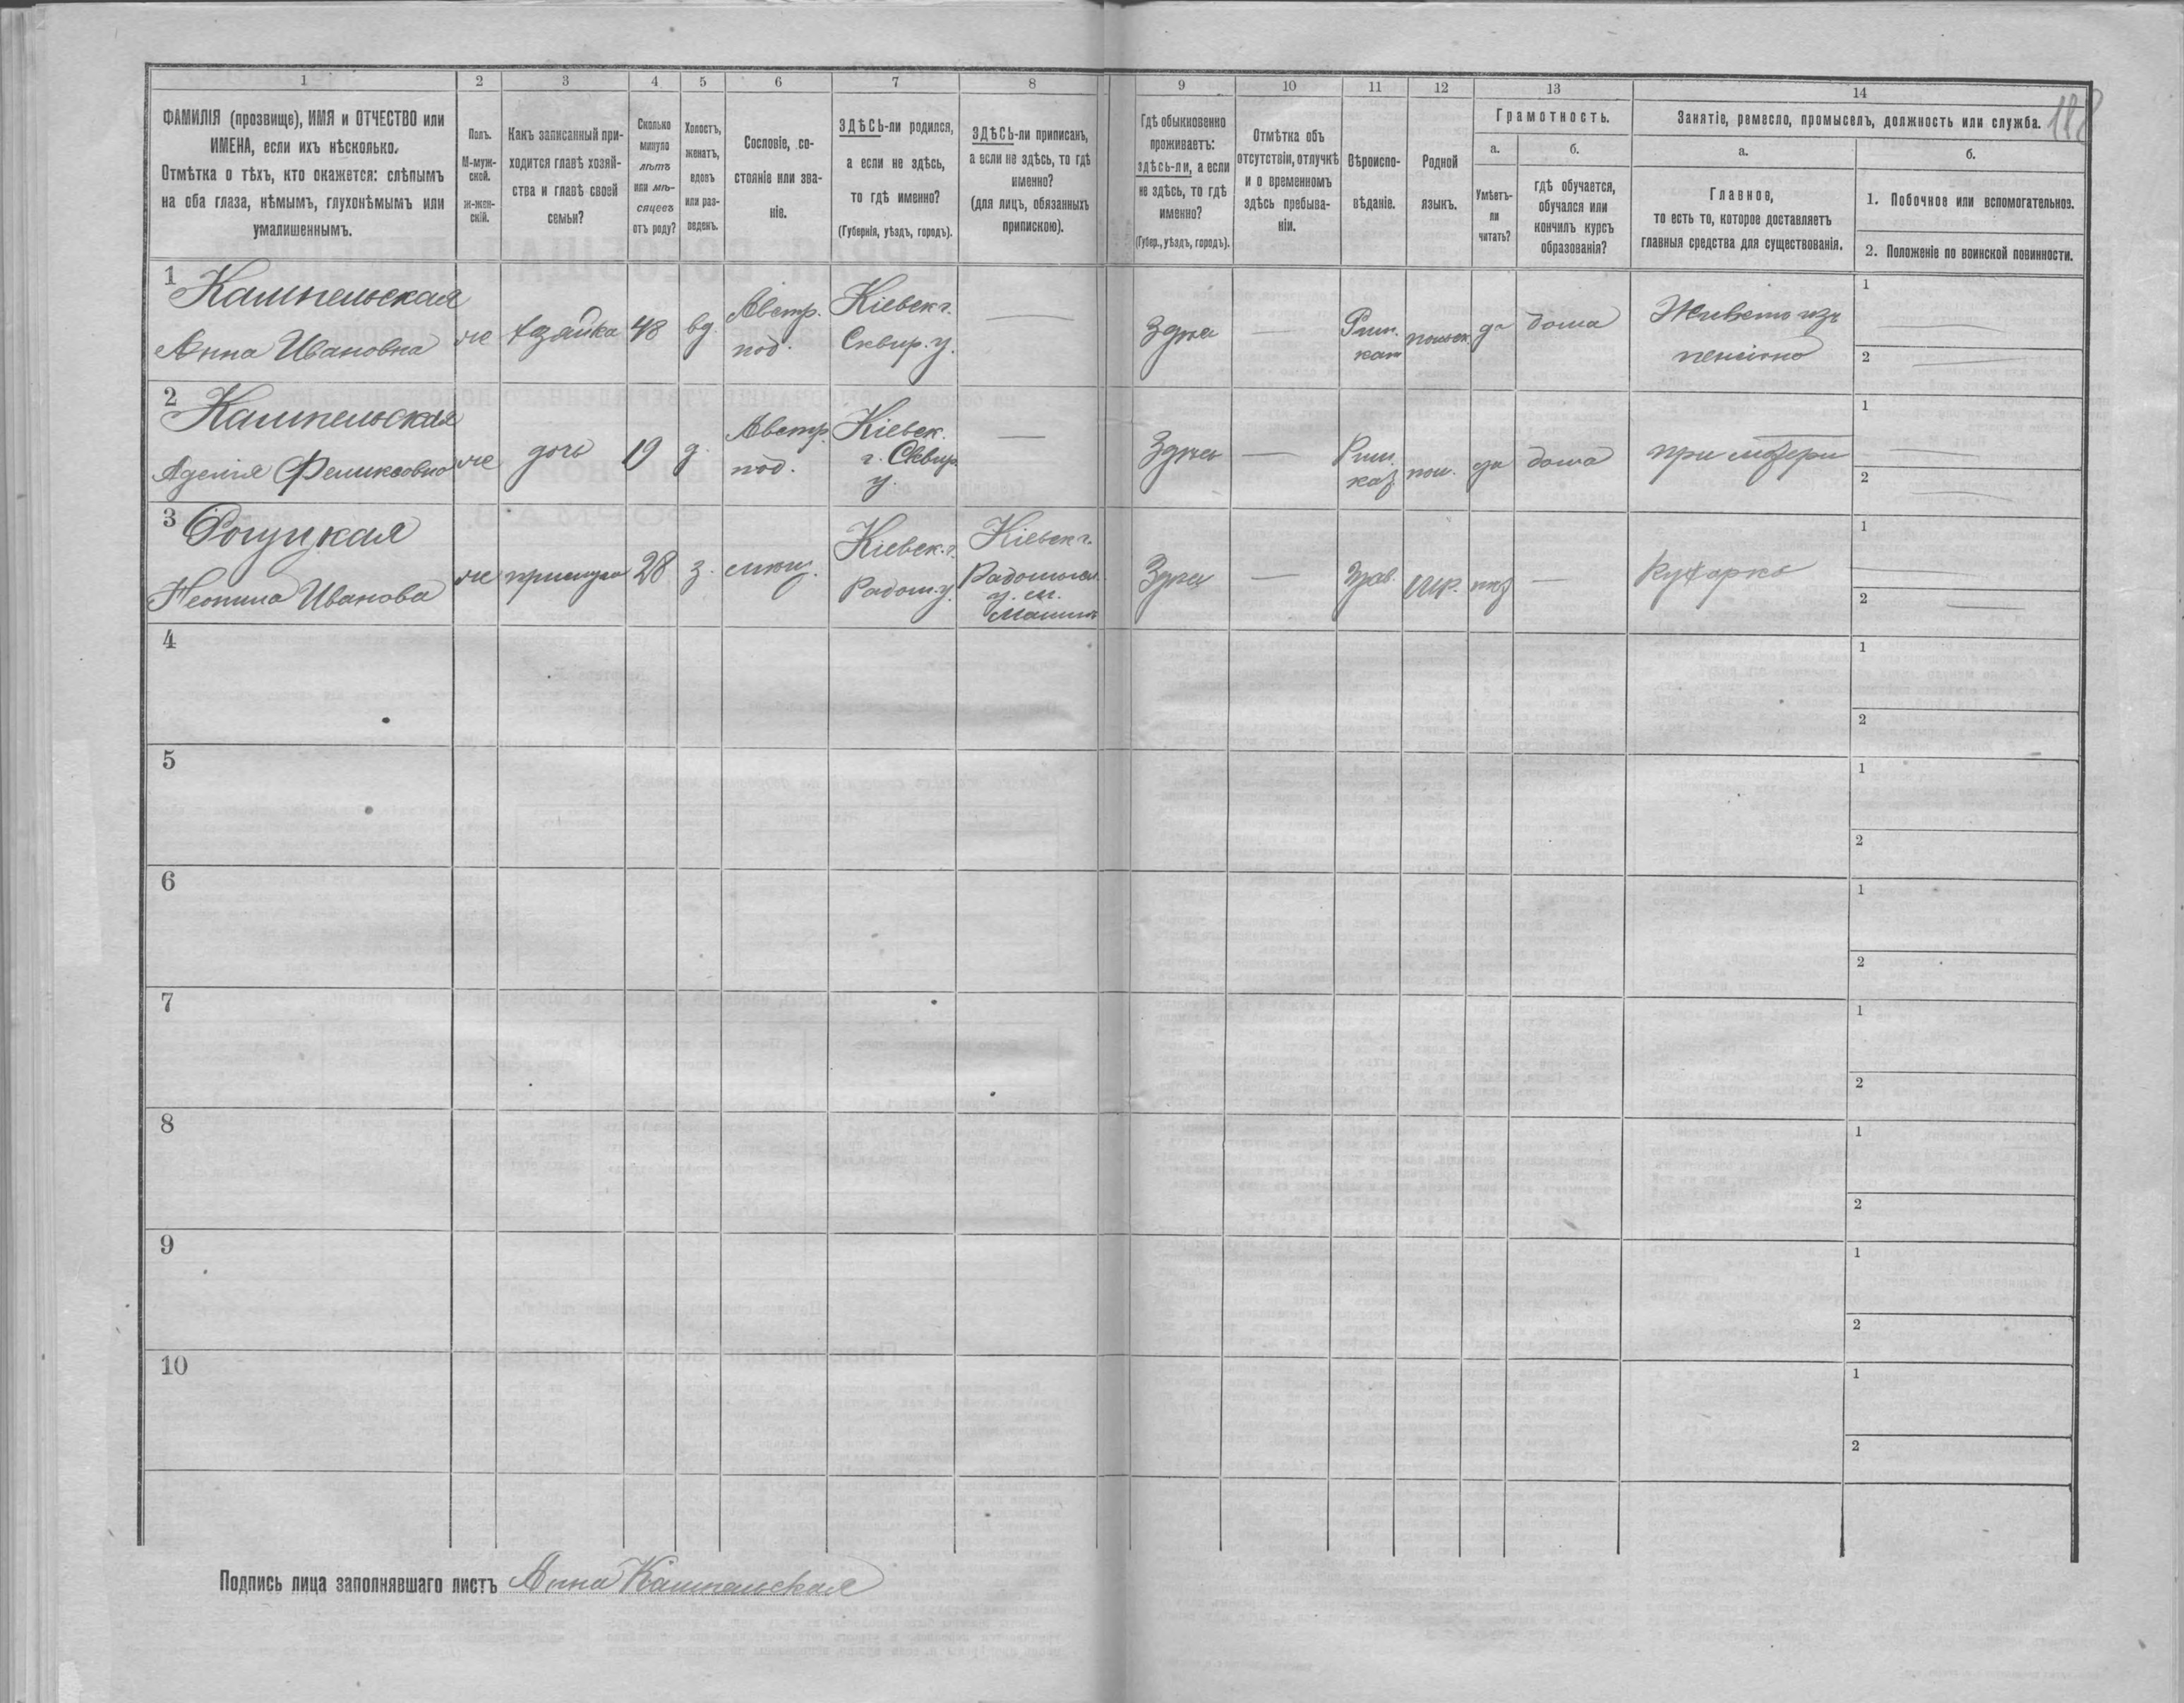 1
2
3
4
5
6
7
8
9
10
11
12
13
14
ФАМИЛІЯ (прозвище), ИМЯ и ОТЧЕСТВО или
ИМЕНА, если ихъ нѣсколько.
Отмѣтка о тѣхъ, кто окажется: слѣпымъ
на оба глаза, нѣмымъ, глухонѣмымъ или
умалишеннымъ.
Полъ.
М-муж-
ской.
ж-жен-
скій.
Какъ записанный при-
ходится главѣ хозяй-
ства и главѣ своей
семьи?
Сколько
минуло
лѣтъ
или мѣ-
сяцевъ
отъ роду?
Холостъ,
женатъ,
вдовъ
или раз-
веденъ.
Сословіе, со-
стояніе или зва-
ніе.
ЗДѢСЬ-ли родился,
а если не здѣсь,
то гдѣ именно?
(Губернія, уѣздъ, городъ).
ЗДѢСЬ-ли приписанъ,
а если не здѣсь, то гдѣ
именно?
(для лицъ, обязанныхъ
припискою).
Гдѣ обыкновенно
проживаетъ:
здѣсь-ли, а если
не здѣсь, то гдѣ
именно?
(Губер., уѣздъ, городъ).
Отмѣтка объ
отсутствіи, отлучкѣ
и о временномъ
здѣсь пребыва-
ніи.
Вѣроиспо-
вѣданіе.
Родной
языкъ.
Грамотность.
а.
Умѣетъ-
ли
читать?
б.
гдѣ обучается,
обучался или
кончилъ курсъ
образованія?
Занятіе, ремесло, промыселъ, должность или служба.
а.
Главное,
то есть то, которое доставляетъ
главныя средства для существованія.
б.
1. Побочное или вспомогательное.
2. Положеніе по воинской повинности.
1
Кашпельская
Анна Ивановна
же
хзяйка
48
вд.
Австр.
под.
Кіевск г.
Сквир. у.
—
Здѣсь
—
Рим.
кат
польск.
да
дома
Живетъ изъ
пенсіею
1
2
2
Кашпельская
Аделія Феликсовна
же
дочь
19
д.
Австр.
под.
Кіевск.
г. Сквир.
у.
—
Здѣсь
—
Рим.
кат
пол.
да
дома
при матери
1
2
3
Рогуцкая
Иванова
же
прислуга
28
з.
мѣщ.
Кіевск. г.
Радом. у.
Кіевск г.
Радомысл.
у. м.
Малинъ
Здѣсь
—
прав.
нѣт
—
Кухарка
1
2
4
1
2
5
1
2
6
1
2
7
1
2
8
1
2
9
1
2
10
1
2
Подпись лица заполнявшаго листъ Анна Кашпельская